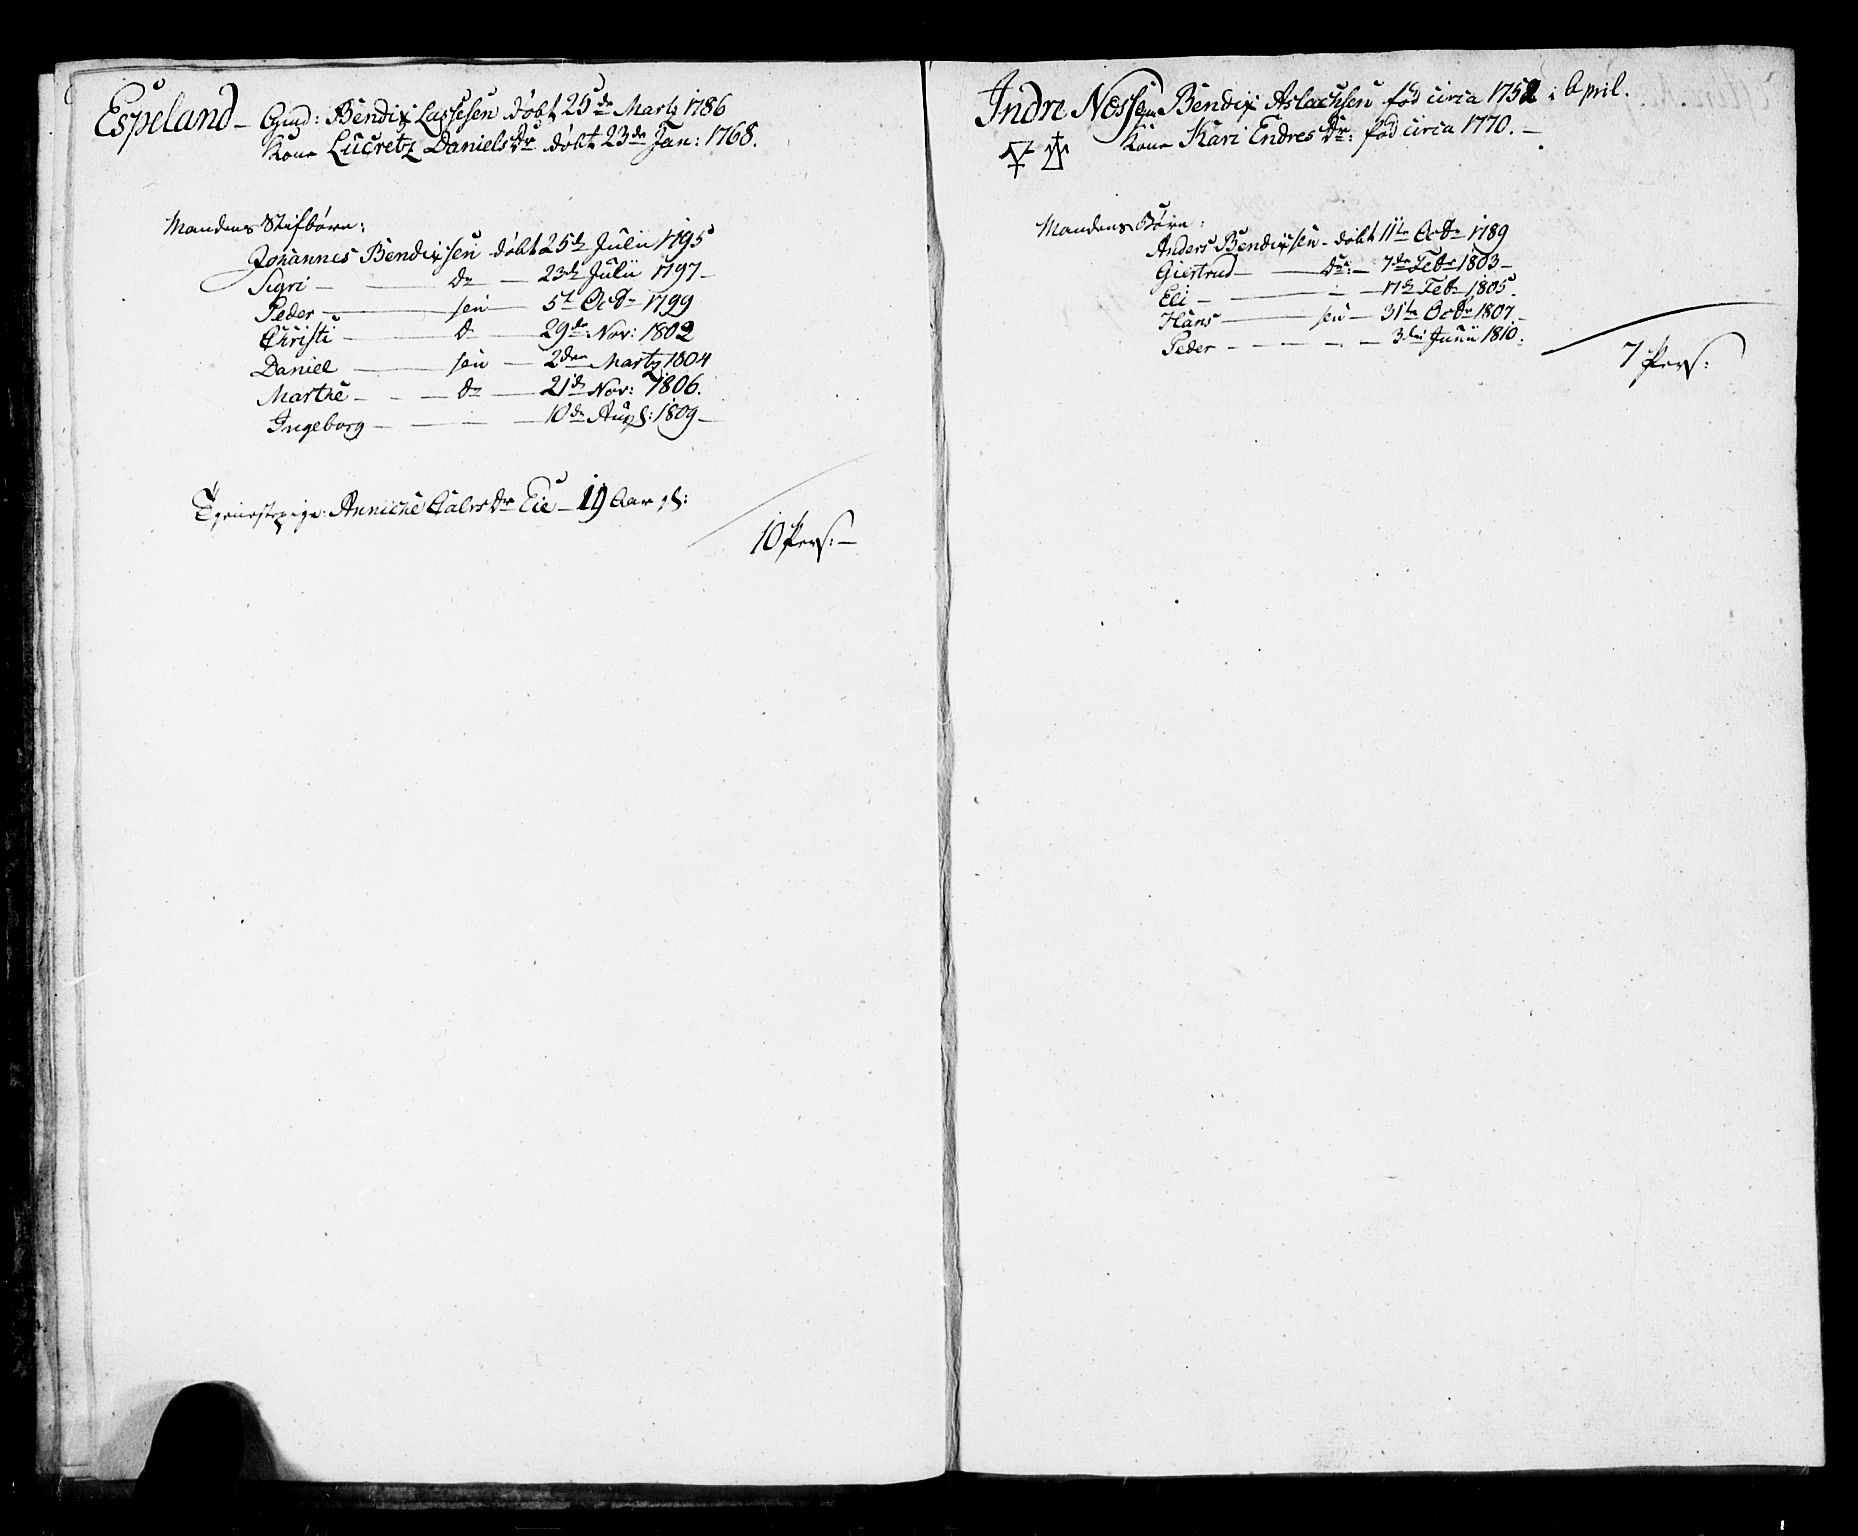 Espeland – Gmd: Bendix Lassesen døbt 25de Martz 1786
Kone Lucretz Daniels Dr døbt 23de Jan: 1768.
Mandens Stifbørn:
Johannes Bendixsen døbt 25de Julii 1795
Sigri — Dr — 23de Julii 1797 –
Peder — sen — 5te Octr 1799
Christi — Dr — 29de Nov: 1802
Daniel — sen — 2den Martz 1804
Marthe — Dr — 21de Nov: 1806.
Ingeborg — 10de Aug: 1809 –
Tjenestepige: Anniche Dr Eie – 19 Aar gl:
10 Pers: –
Indre Næsse Gm Bendix Aslachsen fød circa 1752 i April.
Kone Kari Endres Dr: fød circa 1770. –
Mandens Børn:
Anders Bendixsen – døbt 11te Octr 1789
Giertrud — Dr: — 7de Febr 1803 –
Eli — 17de Febr 1805.
Hans — sen — 31te Octr 1807. –
Peder — 3die Junii 1810.
7 Pers: